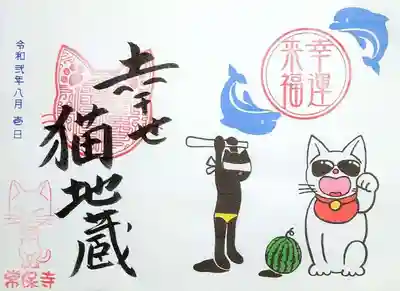 幸せ
猫地蔵
令和弐年八月壱日
幸運
来福
常保寺